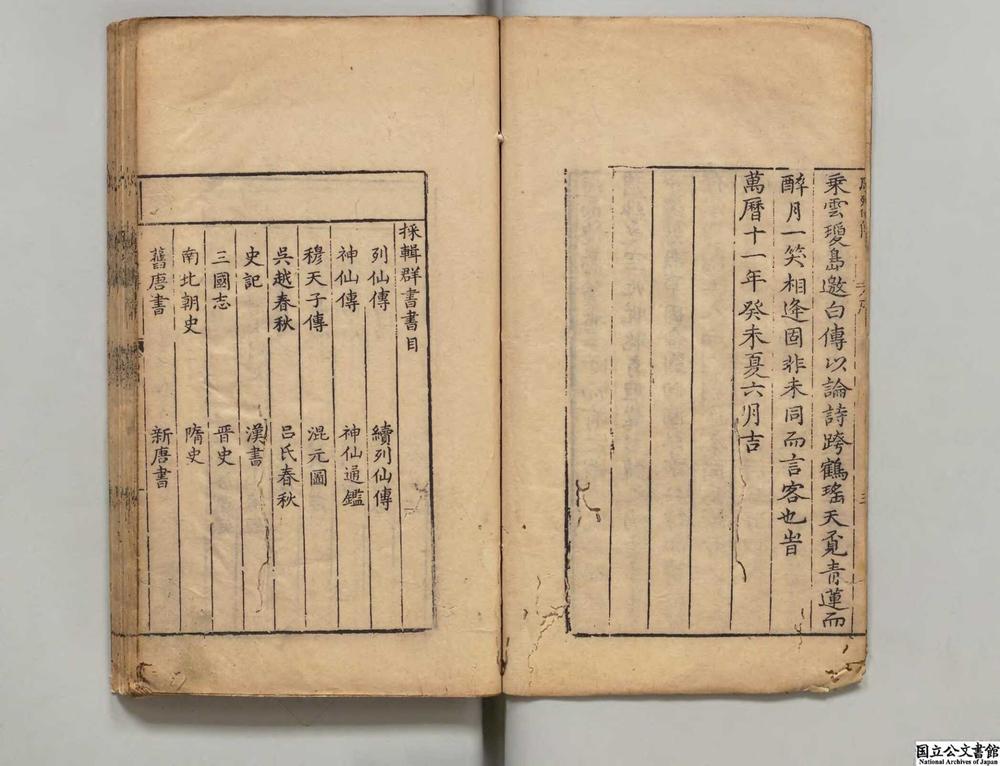 乘雲瓊島邀白傳以論詩跨鶴瑤天覓青蓮而
醉月一笑相逢固非未同而言客也旹
萬曆十一年癸未夏六月吉
採輯群書書目
列仙傳 續列仙傳
神仙傳 神仙通鑑
穆天子傳 混元圖
吳越春秋 呂氏春秋
史記 漢書
三國志 晋史
南北朝史 隋史
舊唐書 新唐書
国立公文書館
National Archives of Japan